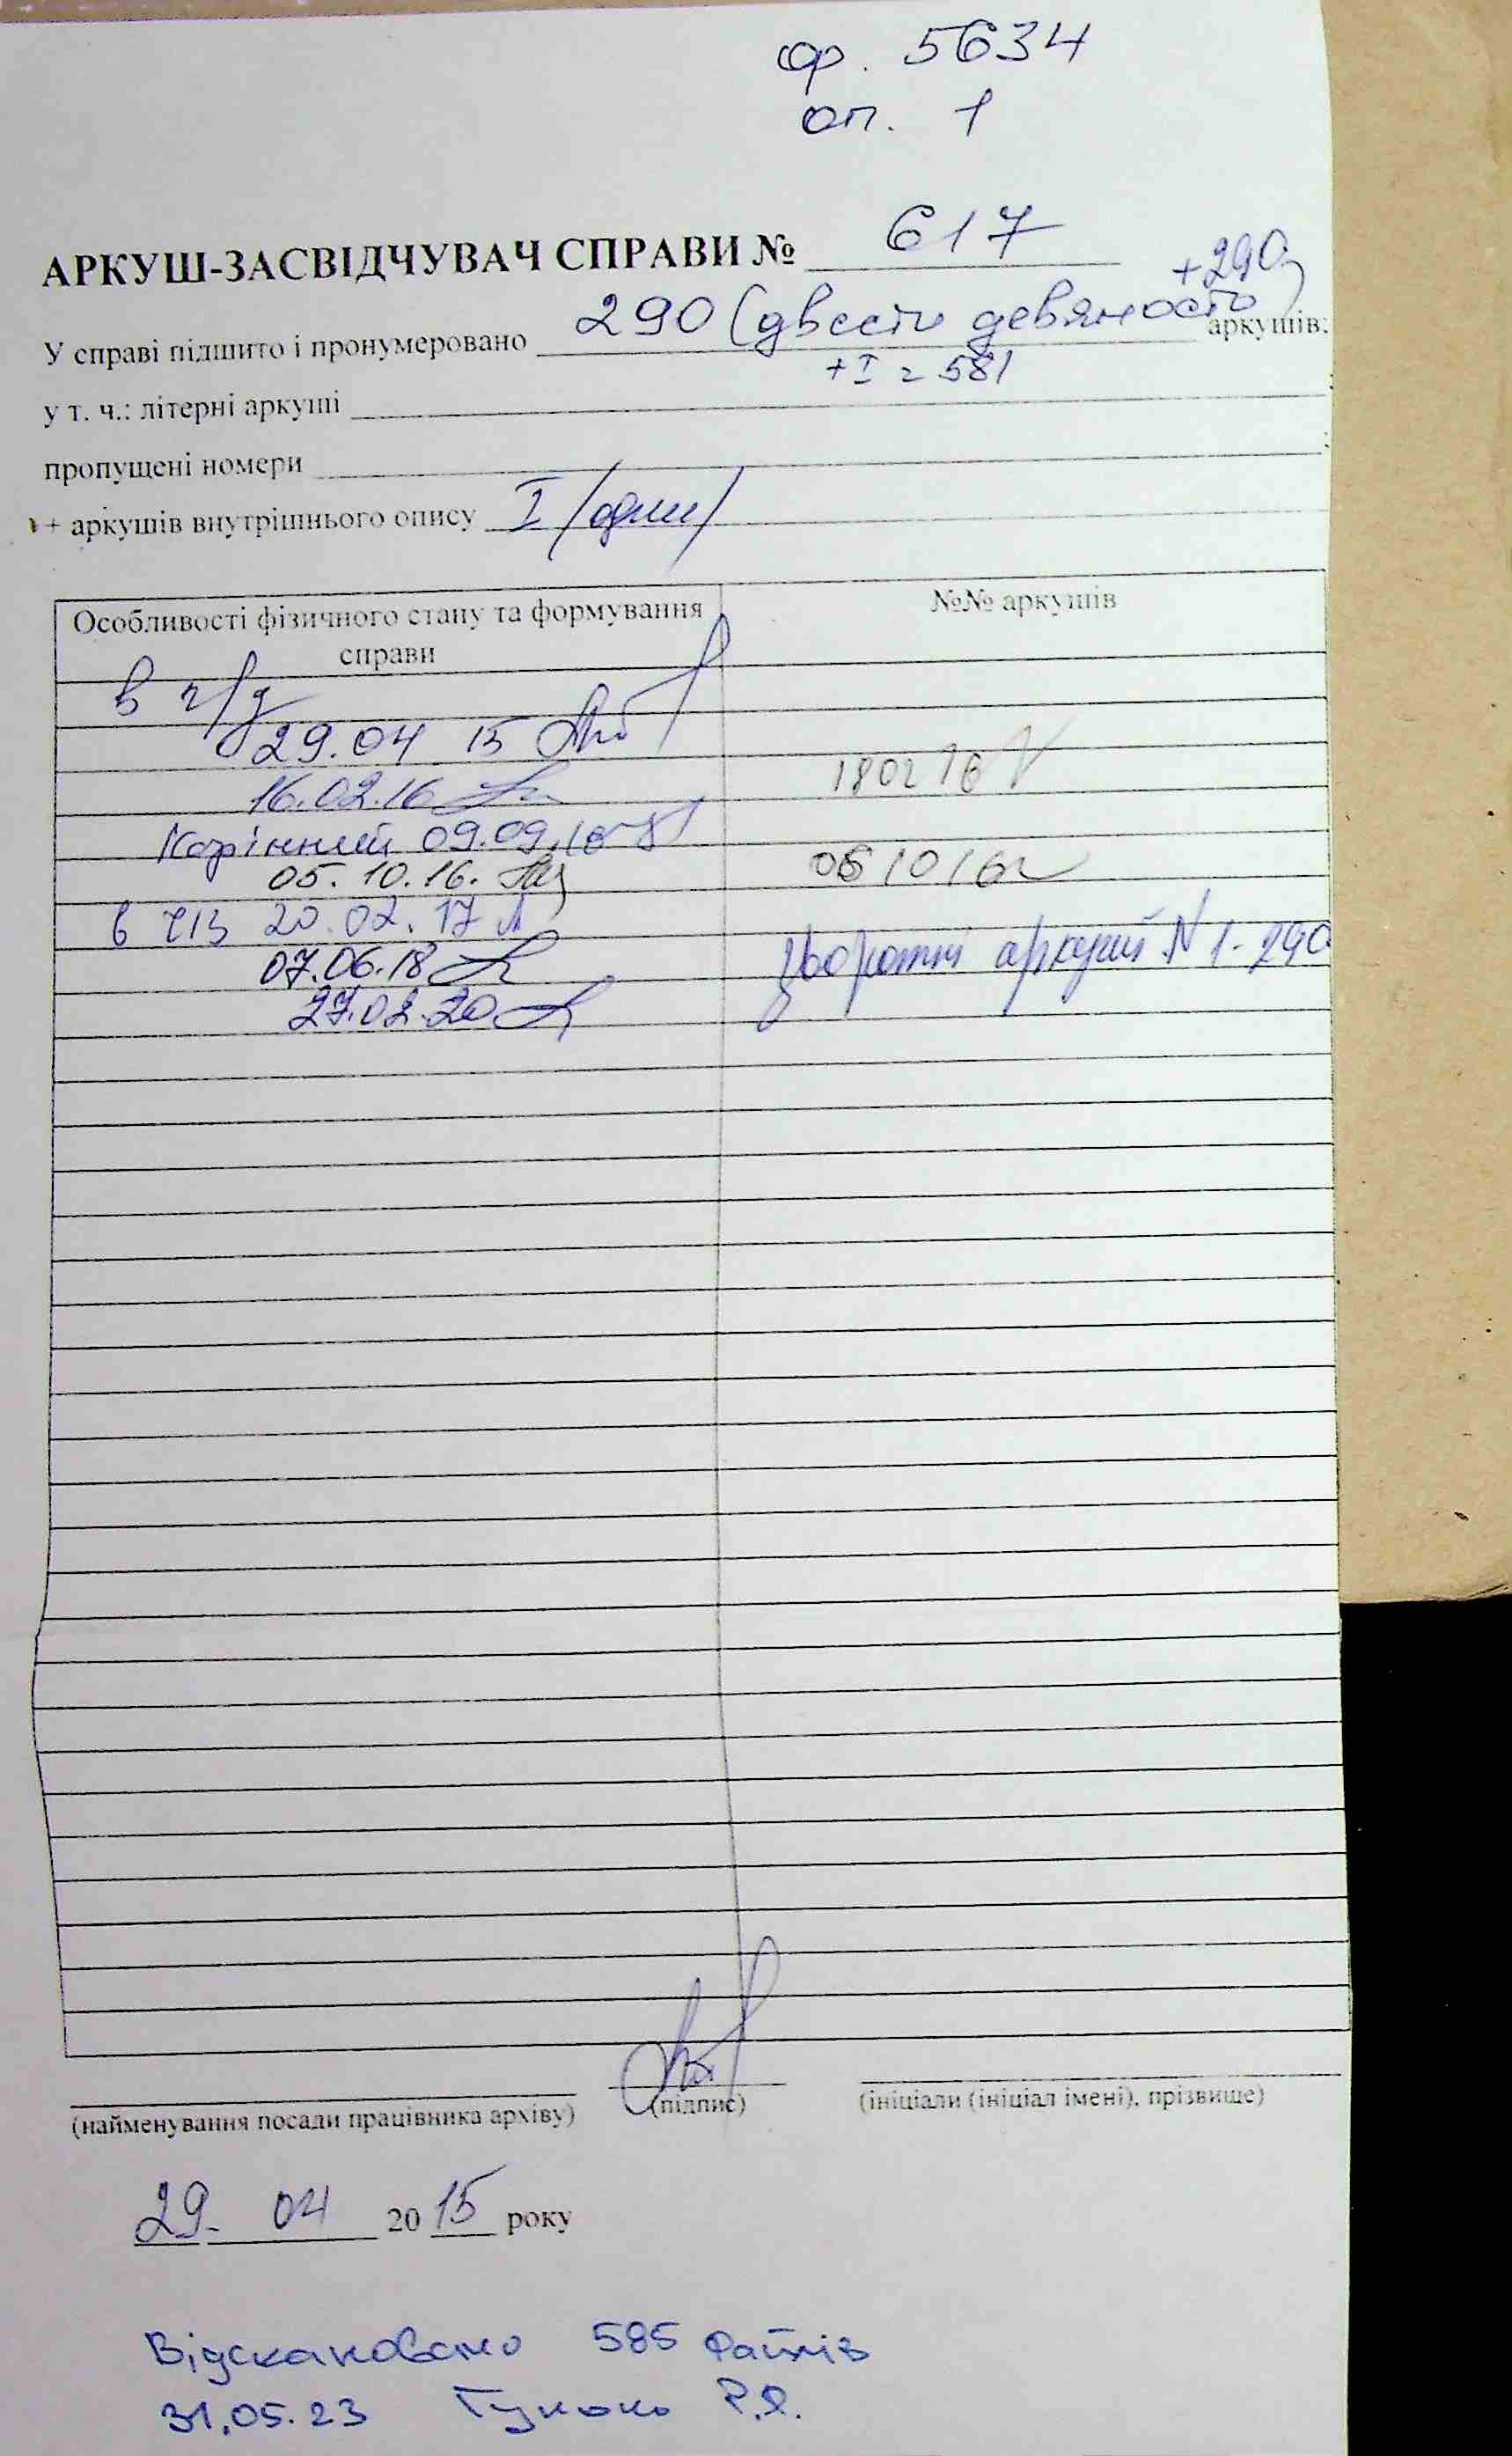 ф. 5634
оп. 1
АРКУШ-ЗАСВІДЧУВАЧ СПРАВИ № 617
+290
У справі підшито і пронумеровано 290 (двести девяносто) аркушів:
+ I = 581
у т. ч.: літерні аркуші
пропущені номери
+ аркушів внутрішнього опису I /один/
Особливості фізичного стану та формування справи
№№ аркушів
в
29.04 15
16.02.16
180216
Корінний 09.09.16
05.10.16.
051016
в ч/з 20.02.17
07.06.18
зворотні аркуші N 1-290
27.02.20
(найменування посади працівника архіву) (підпис) (ініціали (ініціал імені), прізвище)
29. 04 2015 року
Відскановано 585 файлів
31.05.23 Гунько Р.Я.